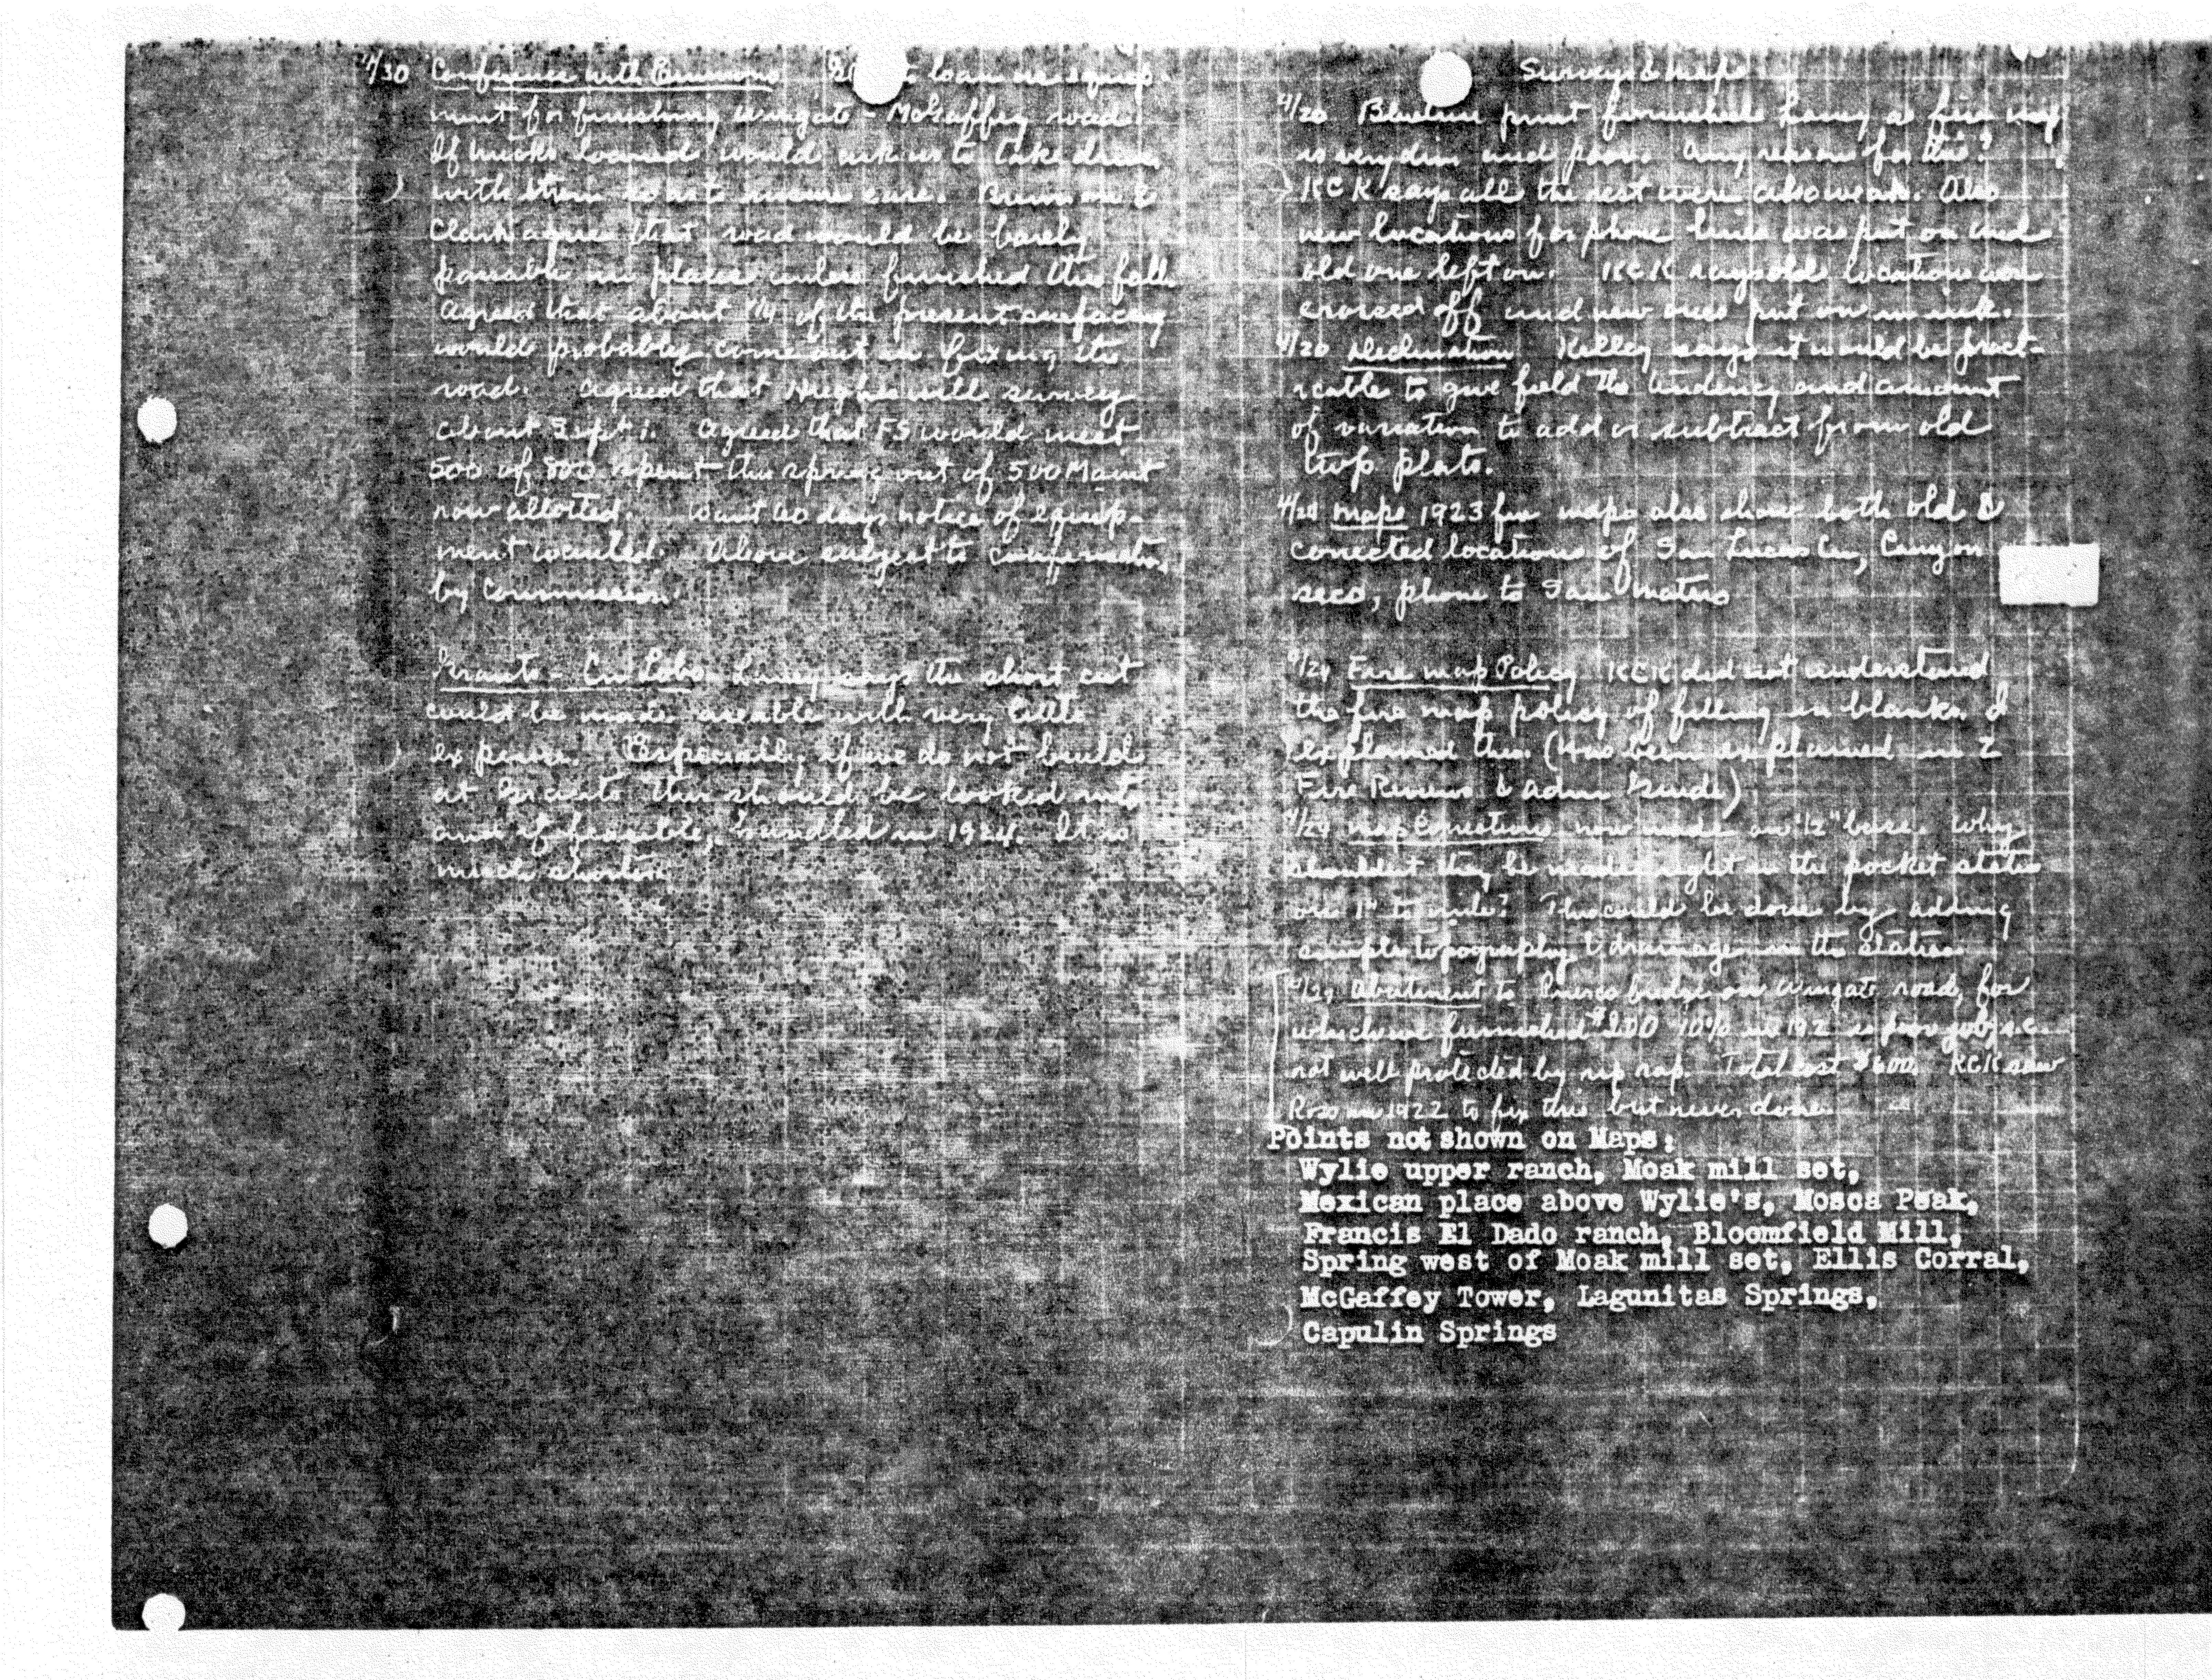 Conference with Emmons to loan us equip-
ment for finishing Wingate - McGaffey road.
If trucks loaned would ask us to take
with them so as to insure care.
Clark agree that road would be barely
passable in places unless finished this fall.
Agreed that about 1/4 of the present surfacing
would probably come out in fixing the
road. Agreed that Hughes will survey
about Sept 1. Agreed that FS would meet
500 of 800 spent this spring out of 500 Maint
now allotted. Want 60 days notice of equip-
ment wanted. Above subject to confirmation
by Commission.
Lobo Laney says the short cut
could be made useable with very little
expense. Especially if we do not build
at this should be looked into
and if feasible, handled in 1924. It is
much shorter.
Surveys & Maps
print furnished Laney as fire map
is very dim and poor. Any reason for this?
KCK says all the rest were also weak. Also
new locations for phone lines was put on and
old one left on. KCK says old locations were
crossed off and new ones put on in ink.
Declination Kelley says it would be pract-
icable to give field the tendency and amount
of variation to add or subtract from old
twp plats.
Maps 1923 fire maps also show both old &
corrected locations of San Lucas Cn, Canyon
seco, phone to San Mateo
Fire map Policy KCK did not understand
the fire map policy of filling in blanks. I
explained this. (Has been explained in 2
Fire Reviews & Adm Guide)
Map Corrections now made on 1/2" base. Why
shouldn't they be made right on the pocket status
on 1" to mile? This could be done by adding
simple topography & drainage on the status.
Abutment to bridge on Wingate road, for
which we furnished $200 10% in 192 is poor job, i.e.
not well protected by rip rap. Total cost $600. KCK saw
Ross in 1922 to fix this but never done.
Points not shown on Maps:
Wylie upper ranch, Moak mill set,
Mexican place above Wylie's, Mosca Peak,
Francis El Dado ranch, Bloomfield Mill,
Spring west of Moak mill set, Ellis Corral,
McGaffey Tower, Lagunitas Springs,
Capulin Springs